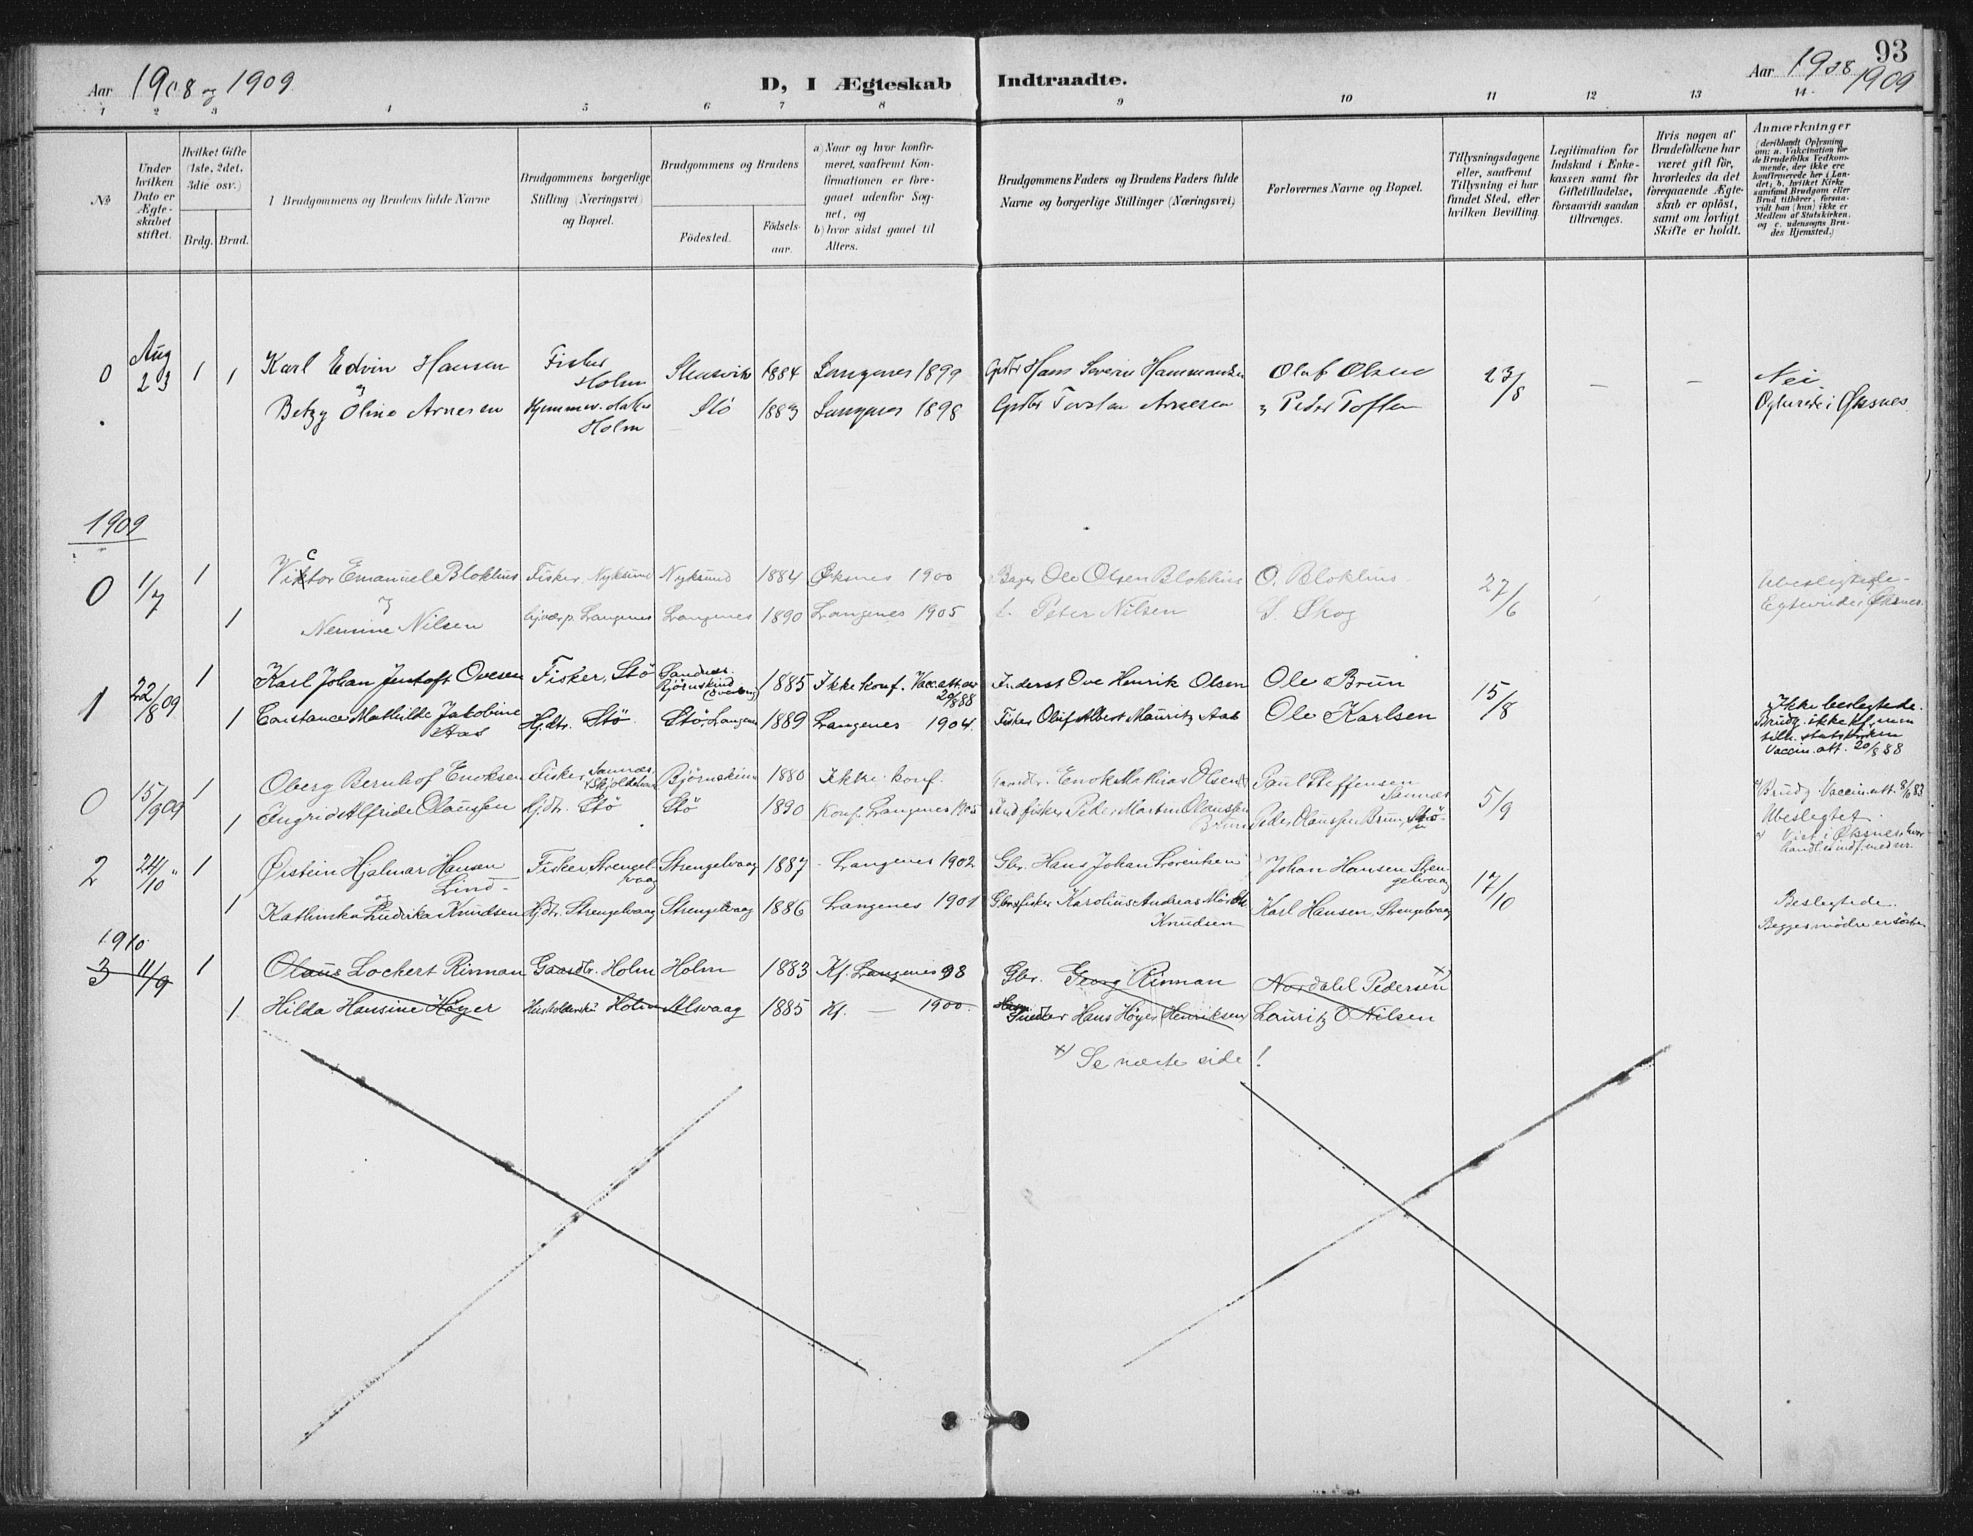 93
Aar 1908 og 1909
D, I Ægteskab Indtraadte.
Aar 1908 1909
1 2 3 4 5 6 7 8 9 10 11 12 13 14
№
Under hvilken Dato er Ægteskabet stiftet.
Hvilket Gifte (1ste, 2det, 3die osv.)
Brdg. Brud.
1 Brudgommens og Brudens fulde Navne
Brudgommens borgerlige Stilling (Næringsvei) og Bopæl.
Brudgommens og Brudens
Födested.
Födselsaar.
a) Naar og hvor konfirmeret, saafremt Konfirmationen er foregaaet udenfor Sognet, og
b) hvor sidst gaaet til Alters.
Brudgommens Faders og Brudens Faders fulde Navne og borgerlige Stillinger (Næringsvei)
Forlovernes Navne og Bopæl.
Tillysningsdagene eller, saafremt Tillysning ei har fundet Sted, efter hvilken Bevilling.
Legitimation for Indskud i Enkekassen samt for Giftetilladelse, forsaavidt saadan tiltrænges.
Hvis nogen af Brudefolkene har været gift för, hvorledes da det foregaaende Ægteskab er oplöst, samt om lovligt Skifte er holdt.
Anmærkninger (deriblandt Oplysning om: a. Vakcination for de Brudefolks Vedkommende, der ikke ere konfirmerede her i Landet; b. hvilket Kirkesamfund Brudgom eller Brud tilhörer, forsaavidt han (hun) ikke er Medlem af Statskirken, og c. udensogns Brudes Hjemsted.)
0 Aug 23 1 1 Karl Edvin Hansen Fisker Holm 1884 Langenes 1899 Hans Severin Olaf Olsen 23/8 — — Nei
og Betzy Oline Arnesen Holm Stö 1883 Langenes 1898 Torsten Arnesen Peder Toften i Øksnes
1909
0 1/7 1 Victor Emanuel Blokhus Fisker, Nyksund Nyksund 1884 Øksnes 1900 Ole Olsen Blokhus O. Blokhus 27/6 Ubeslegtede.
og 1 Nemine Nilsen Langenes Langenes 1890 Langenes 1905 Peter Nilsen S. Skog Øksnes
1 22/8 09 1 Karl Johan Jentoft Ovesen Fisker, Stö Björnskind 1885 Ikke konf. Vacc. att. av 20/8 88 Inderst Ove Henrik Olsen Ole Brun 15/8
1 Constance Mathilde Jakobine Aas Hjdtr. Stö Stö, Langenes 1889 Langenes 1904. Fisker Olif Albert Mauritz Aas Ole Karlsen Ikke beslegtede.
Brudg. ikke kf, men tilh. statskirken
Vaccin. att. 20/8 88
0 15/9 09 1 Oberg Bernhof Enoksen Fisker Björnskind 1880 Ikke konf. Enok Mathias Olsen Paul Steffensen 5/9 Brudg. Vaccin. att.
1 Ingrid Alfride Olaussen Hjdtr. Stö Stö 1890 Konf. Langenes 1905 Peder Martin Olaussen Brun Peder Olaussen Brun, Stö Ubeslegtet.
Viet i Øksnes,
2 24/10 " 1 Øistein Hjalmar Hansen Lind Fisker, Strengelvaag Strengelvaag 1887 Langenes 1902 Gbr. Hans Johan Lorentzen Johan Hansen Strengelvaag 17/10
og 1 Kathinka Ludrika Knudsen Hjdtr. Strengelvaag Strengelvaag 1886 Langenes 1901 Karolius Andreas Knudsen Karl Hansen, Strengelvaag Beslegtede.
Begges mødre er søstre
1910
3 11/9 1 Olaus Lockert Rinman Gaardbr. Holm Holm 1883 Kf. Langenes 98 Gbr. Georg Rinman Nordahl Pedersen x)
1 Hilda Hansine Høyer Holm Alsvaag 1885 Kf. — 1900. Hans Høyer Henriksen Lauritz O Nilsen
x) Se næste side!